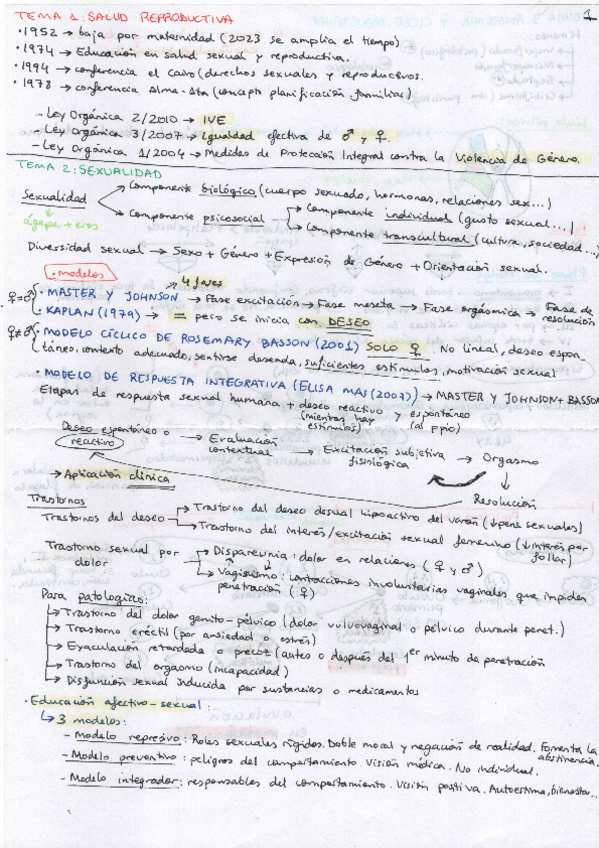 1
TEMA 1: SALUD REPRODUCTIVA
· 1952 → baja por maternidad (2023 se amplia el tiempo)
· 1974 → Educación en salud sexual y reproductiva.
· 1994 → conferencia el cairo (derechos sexuales y reproductivos.
· 1978 → conferencia Alma-Ata (concepto planificación familiar)
- Ley Orgánica 2/2010 → IVE
- Ley Orgánica 3/2007 → Igualdad efectiva de ♂ y ♀.
- Ley Orgánica 1/2004 → Medidas de Protección Integral contra la Violencia de Género.
TEMA 2: SEXUALIDAD
Sexualidad → Componente biológico (cuerpo sexuado, hormonas, relaciones sex...)
→ Componente psicosocial → Componente individual (gusto sexual...)
→ Componente transcultural (cultura, sociedad...)
ágape + eros
Diversidad sexual → Sexo + Género + Expresión de Género + Orientación sexual.
· modelos
4 fases
♀=♂ · MASTER Y JOHNSON → Fase excitación → Fase meseta → Fase orgásmica → Fase de resolución
· KAPLAN (1979) → = pero se inicia con DESEO
♀≠♂ · MODELO CÍCLICO DE ROSEMARY BASSON (2001) SOLO ♀. No lineal, deseo espon-
táneo, contexto adecuado, sentirse deseada, suficientes estímulos, motivación sexual
· MODELO DE RESPUESTA INTEGRATIVA (ELISA MAS (2007)) → MASTER Y JOHNSON + BASSON
Etapas de respuesta sexual humana + deseo reactivo y espontáneo
(mientras hay estímulos) (al ppio)
Deseo espontáneo o reactivo → Evaluación contextual → Excitación subjetiva fisiológica → Orgasmo
Resolución
→ Aplicación clínica
Trastornos
Trastornos del deseo → Trastorno del deseo sexual hipoactivo del varón (↓pens sexuales)
→ Trastorno del interés/excitación sexual femenino (↓interés por follar)
Trastorno sexual por dolor → Dispareunia: dolor en relaciones (♀ y ♂)
→ Vaginismo: contracciones involuntarias vaginales que impiden
penetración (♀)
Para patologías:
→ Trastorno del dolor genito-pélvico (dolor vulvovaginal o pélvico durante penet.)
→ Trastorno eréctil (por ansiedad o estrés)
→ Eyaculación retardada o precoz (antes o después del 1er minuto de penetración
→ Trastorno del orgasmo (incapacidad)
→ Disfunción sexual inducida por sustancias o medicamentos
· Educación afectivo-sexual:
↳ 3 modelos:
- Modelo represivo: Roles sexuales rígidos. Doble moral y negación de realidad. Fomenta la abstinencia.
- Modelo preventivo: peligros del comportamiento. Visión médica. No individual.
- Modelo integrador: responsables del comportamiento. Visión positiva. Autoestima, bienestar...